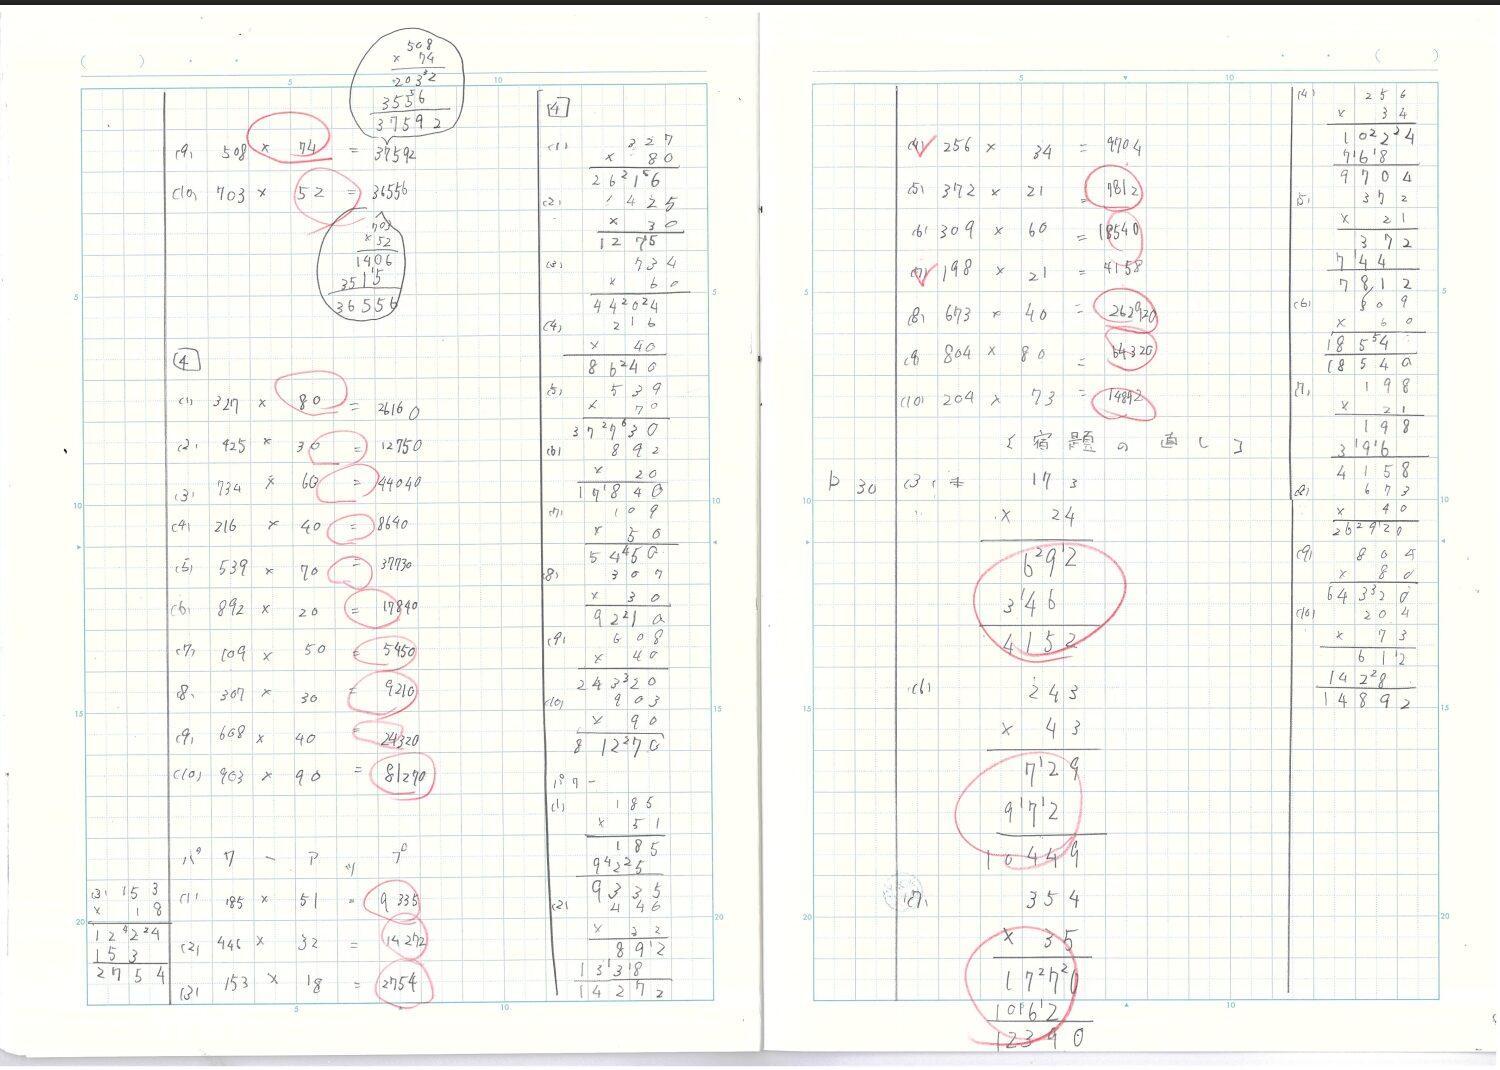 508
× 74
2032
3556
37592
(9) 508 × 74 = 37592
(10) 703 × 52 = 36556
703
×52
1406
3515
36556
4
(1) 327 × 80 = 26160
(2) 425 × 30 = 12750
(3) 734 × 60 = 44040
(4) 216 × 40 = 8640
(5) 539 × 70 = 37730
(6) 892 × 20 = 17840
(7) 109 × 50 = 5450
(8) 307 × 30 = 9210
(9) 608 × 40 = 24320
(10) 903 × 90 = 81270
パワーアップ
(1) 185 × 51 = 9335
(2) 446 × 32 = 14272
(3) 153 × 18 = 2754
(3) 153
× 18
1224
153
2754
4
(1) 327
× 80
26216
(2) 425
× 30
1275
(3) 734
× 60
44040
(4) 216
× 40
8640
(5) 539
× 70
37730
(6) 892
× 20
17840
(7) 109
× 50
5450
(8) 307
× 30
9210
(9) 608
× 40
24320
(10) 903
× 90
81270
パワー
(1) 185
× 51
185
9425
9335
(2) 446
892
1338
14272
(4) 256 × 34 = 9704
(5) 372 × 21 = 7812
(6) 309 × 60 = 18540
(7) 198 × 21 = 4158
(8) 673 × 40 = 262920
(9) 804 × 80 = 64320
(10) 204 × 73 = 14892
{宿題の直し}
P30 (3) 173
× 24
692
346
4152
(6) 243
× 43
729
972
10449
(7) 354
× 35
1770
1062
12390
(4) 256
× 34
1024
768
9704
(5) 372
× 21
372
744
7812
(6) 309
× 60
1854
18540
(7) 198
× 21
198
396
4158
(8) 673
× 40
262920
(9) 804
× 80
64320
(10) 204
× 73
612
1428
14892